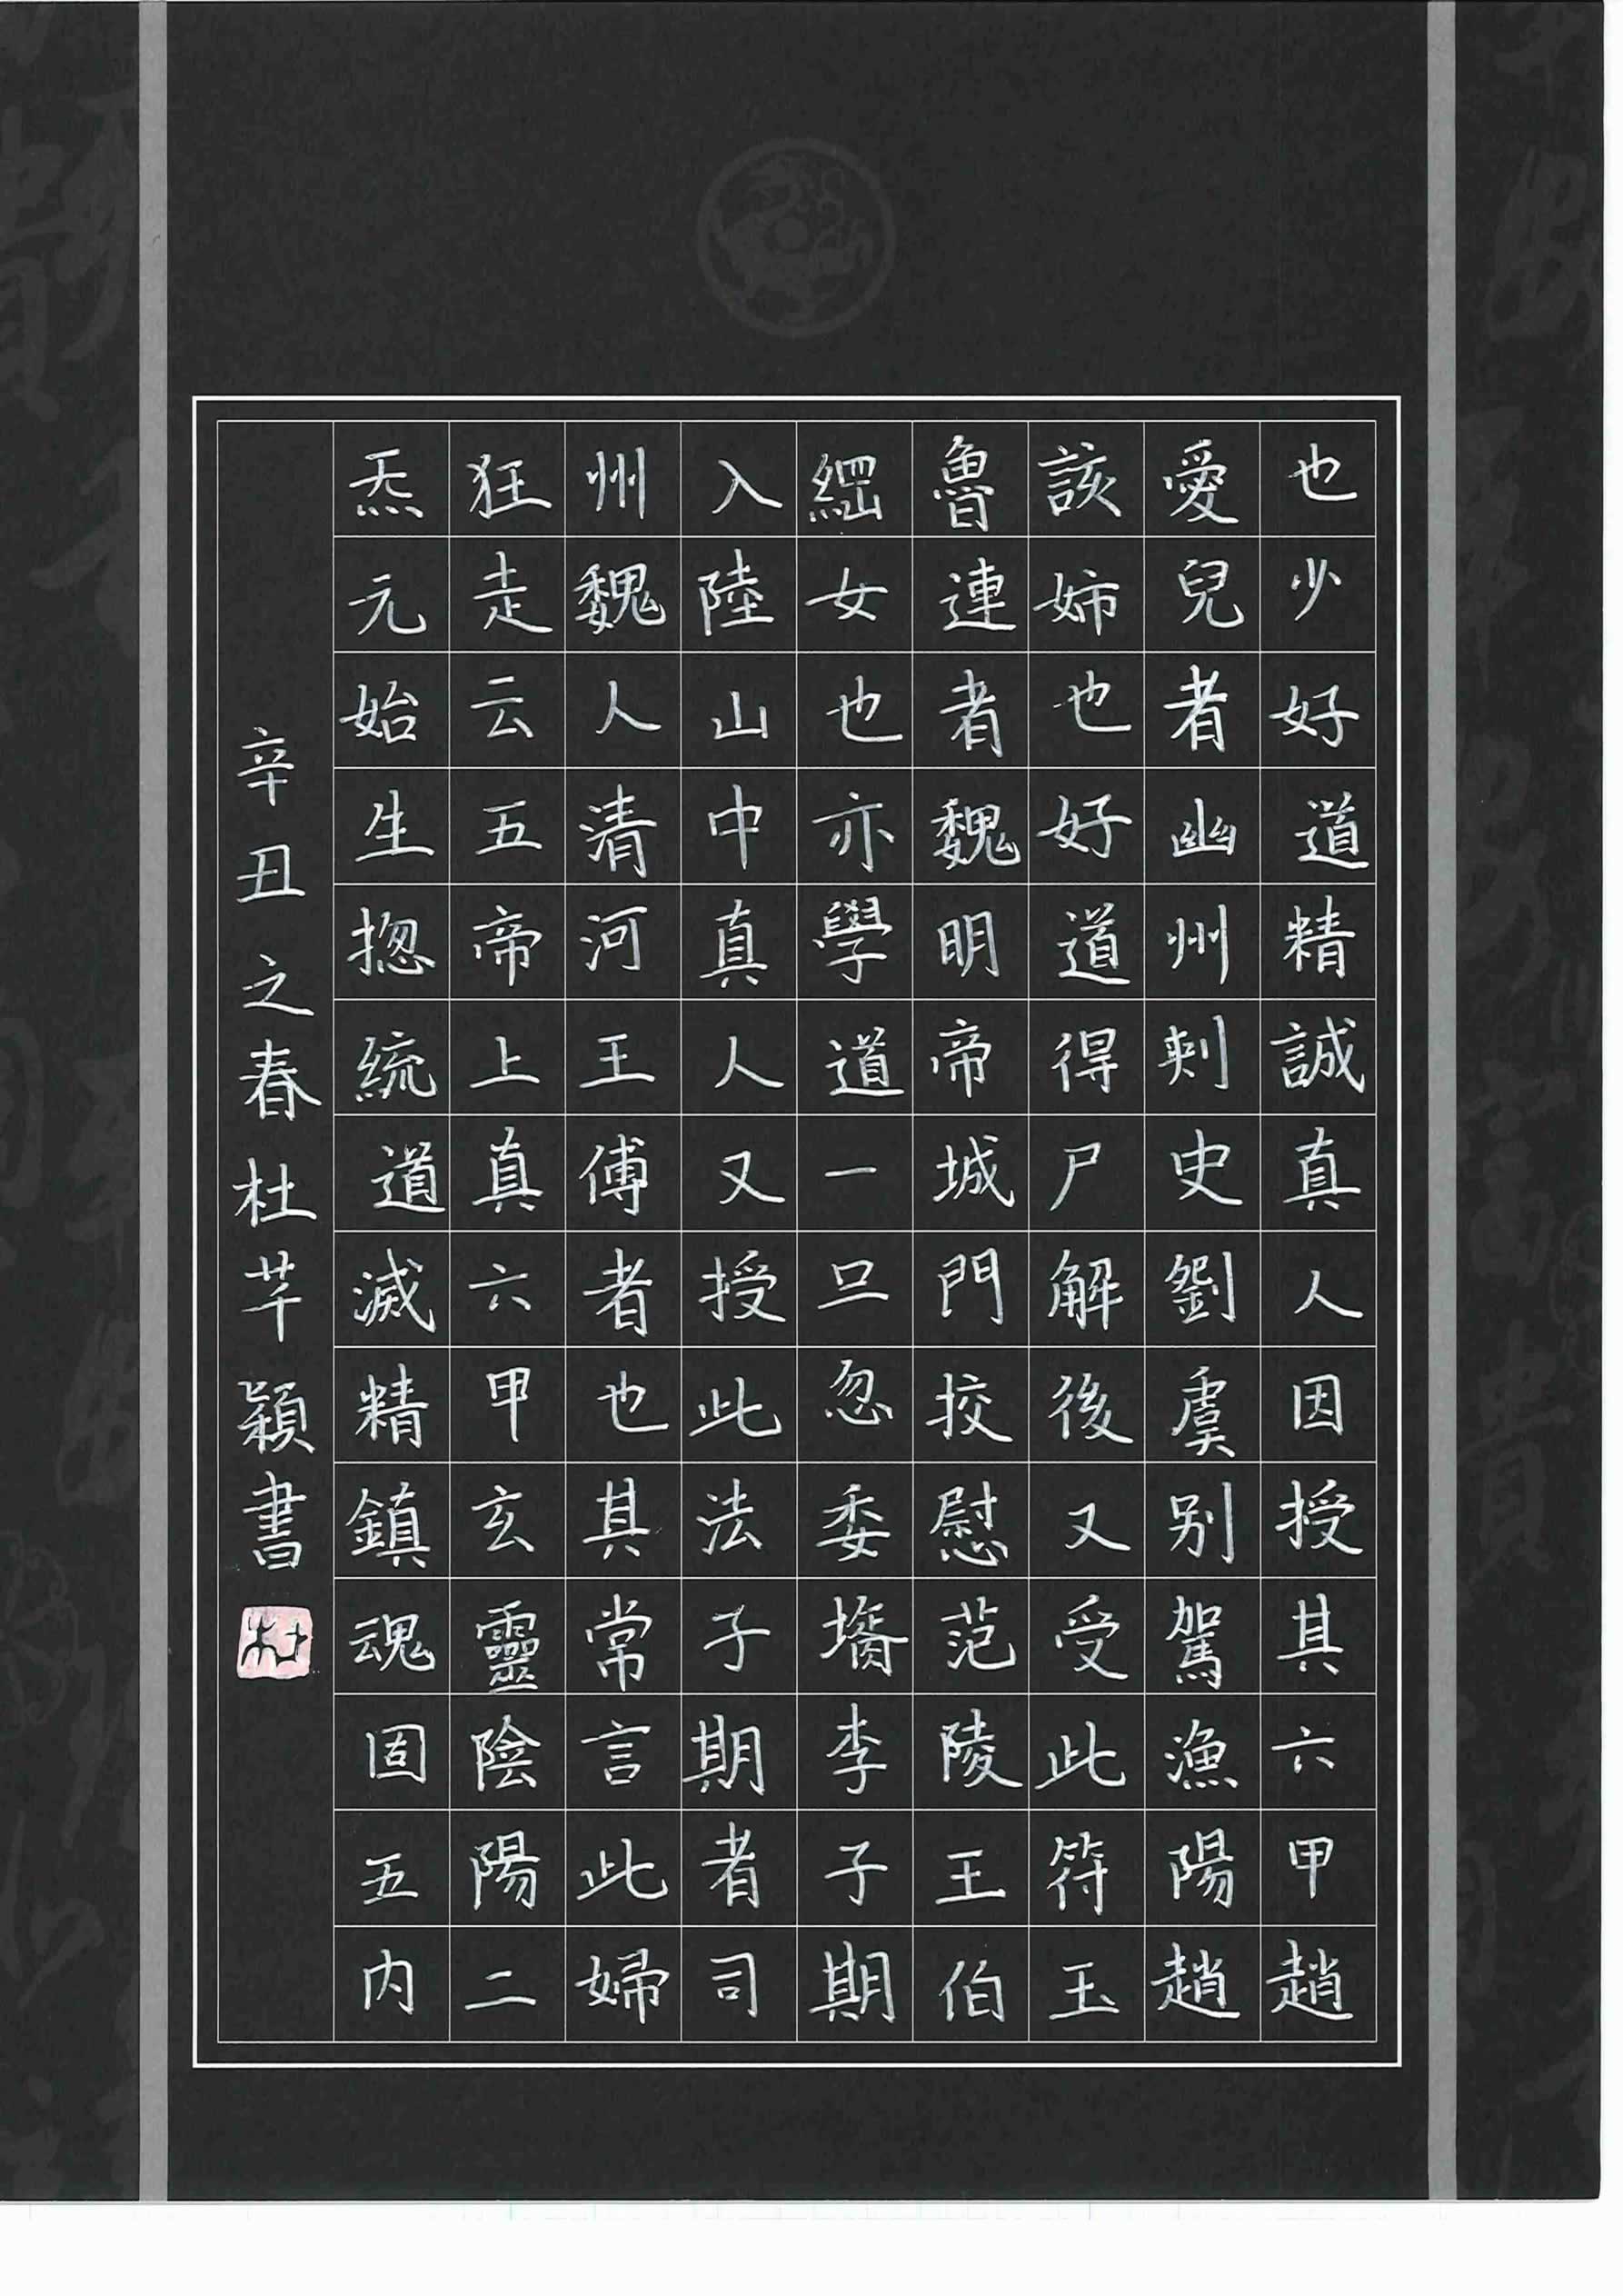 也少好道精誠真人因授其六甲趙
愛兒者幽州剌史劉虞别駕漁陽趙
該姉也好道得尸解後又受此符玉
魯連者魏明帝城門挍慰范陵王伯
綱女也亦學道一旦忽委壻李子期
入陸山中真人又授此法子期者司
州魏人清河王傅者也其常言此婦
狂走云五帝上真六甲玄靈陰陽二
炁元始生揔統道滅精鎮魂固五内
辛丑之春杜芊穎書
杜